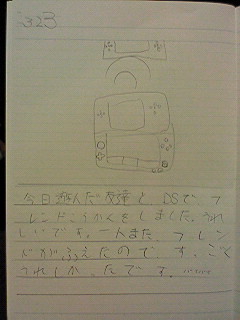 3.23
今日遊んだ友達と、DSで、フ
レンドこうかんをしました。うれ
しいです。一人また、フレン
ドがふえたのです。すごく
うれしかったです。